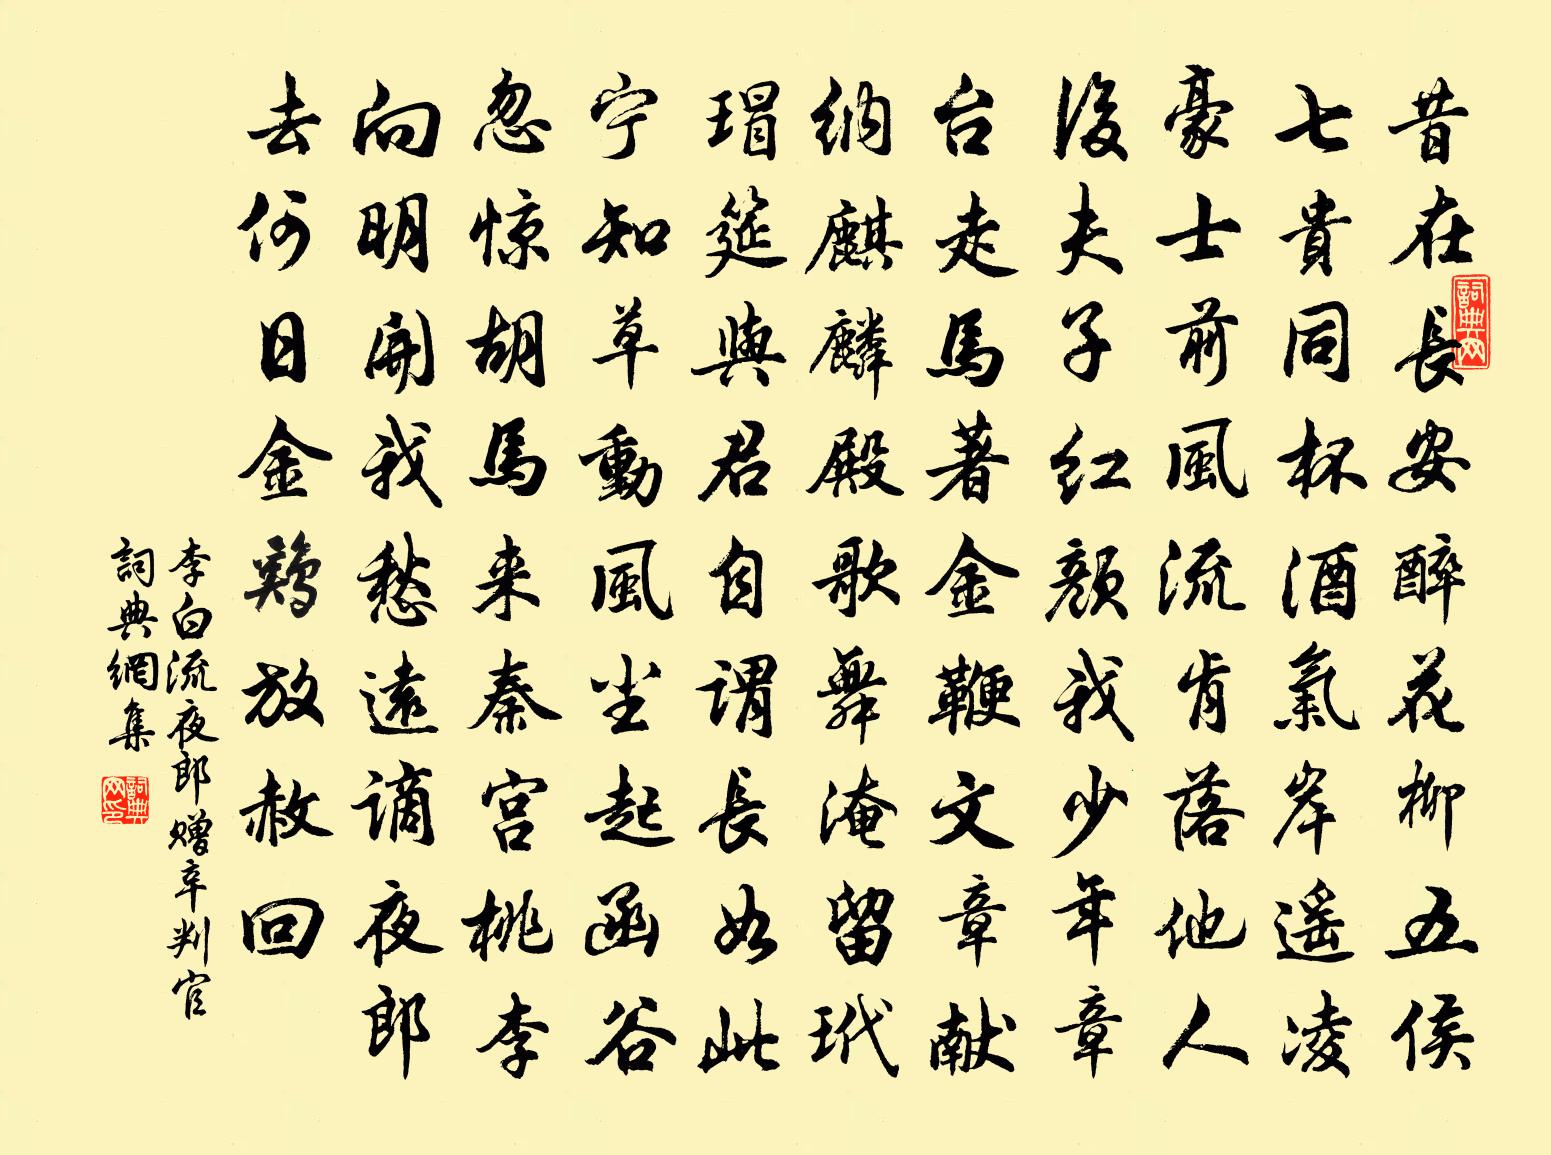 昔在長安醉花柳五侯
七貴同杯酒氣岸遥凌
豪士前風流肯落他人
後夫子红顔我少年章
台走馬著金鞭文章献
納麒麟殿歌舞淹留玳
瑁筵與君自謂長如此
宁知草動風尘起函谷
忽惊胡馬来秦宫桃李
向明開我愁遠謫夜郎
去何日金鷄放赦回
李白流夜郎贈辛判官
詞典網集
詞典网
詞典网印